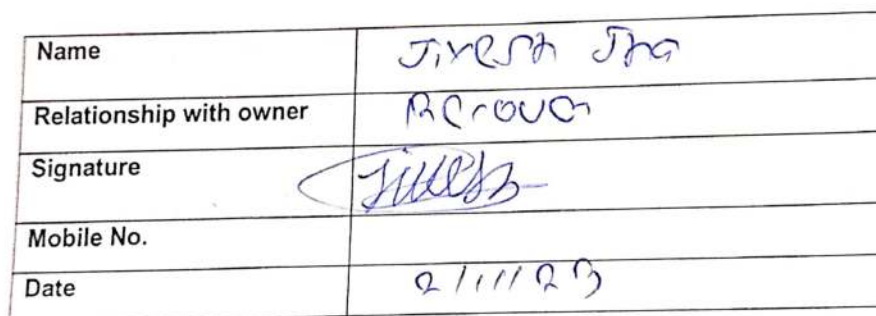 Name Jivesh Jha
Relationship with owner
Signature Jivesh
Mobile No.
Date 2/11/23